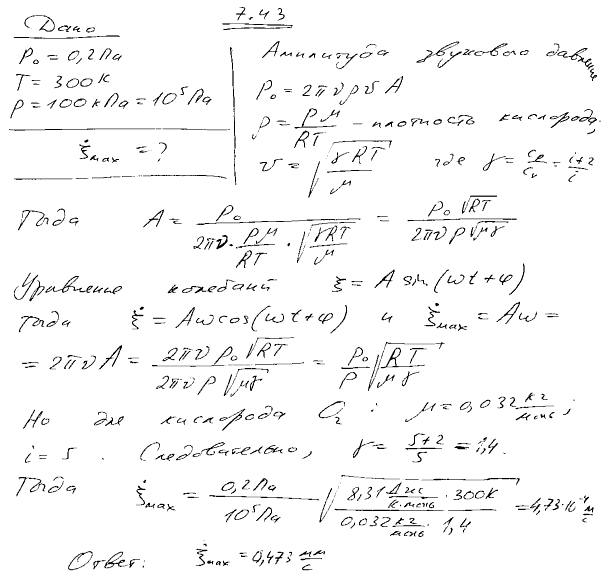 7.43
Дано
P₀ = 0,2 Па
T = 300 К
P = 100 кПа = 10⁵ Па
ξ̇max = ?
Амплитуда звукового давления
P₀ = 2πνρυA
ρ = Pμ/RT - плотность кислорода,
υ = √(γRT/μ) где γ = Cp/Cv = (i+2)/i
Тогда A = P₀/(2πν · Pμ/RT · √(γRT/μ)) = P₀√RT/(2πνP√μγ)
Уравнение колебаний ξ = A sin(ωt+φ)
тогда ξ̇ = Aω cos(ωt+φ) и ξ̇max = Aω =
= 2πνA = 2πνP₀√RT/(2πνP√μγ) = P₀/P √(RT/μγ)
Но для кислорода O₂ : μ = 0,032 кг/моль ;
i = 5 . Следовательно, γ = (5+2)/5 = 1,4.
Тогда ξ̇max = 0,2 Па/10⁵ Па √((8,31 Дж/К·моль · 300К)/(0,032 кг/моль · 1,4)) = 4,73·10⁻⁴ м/с
Ответ: ξ̇max = 0,473 мм/с